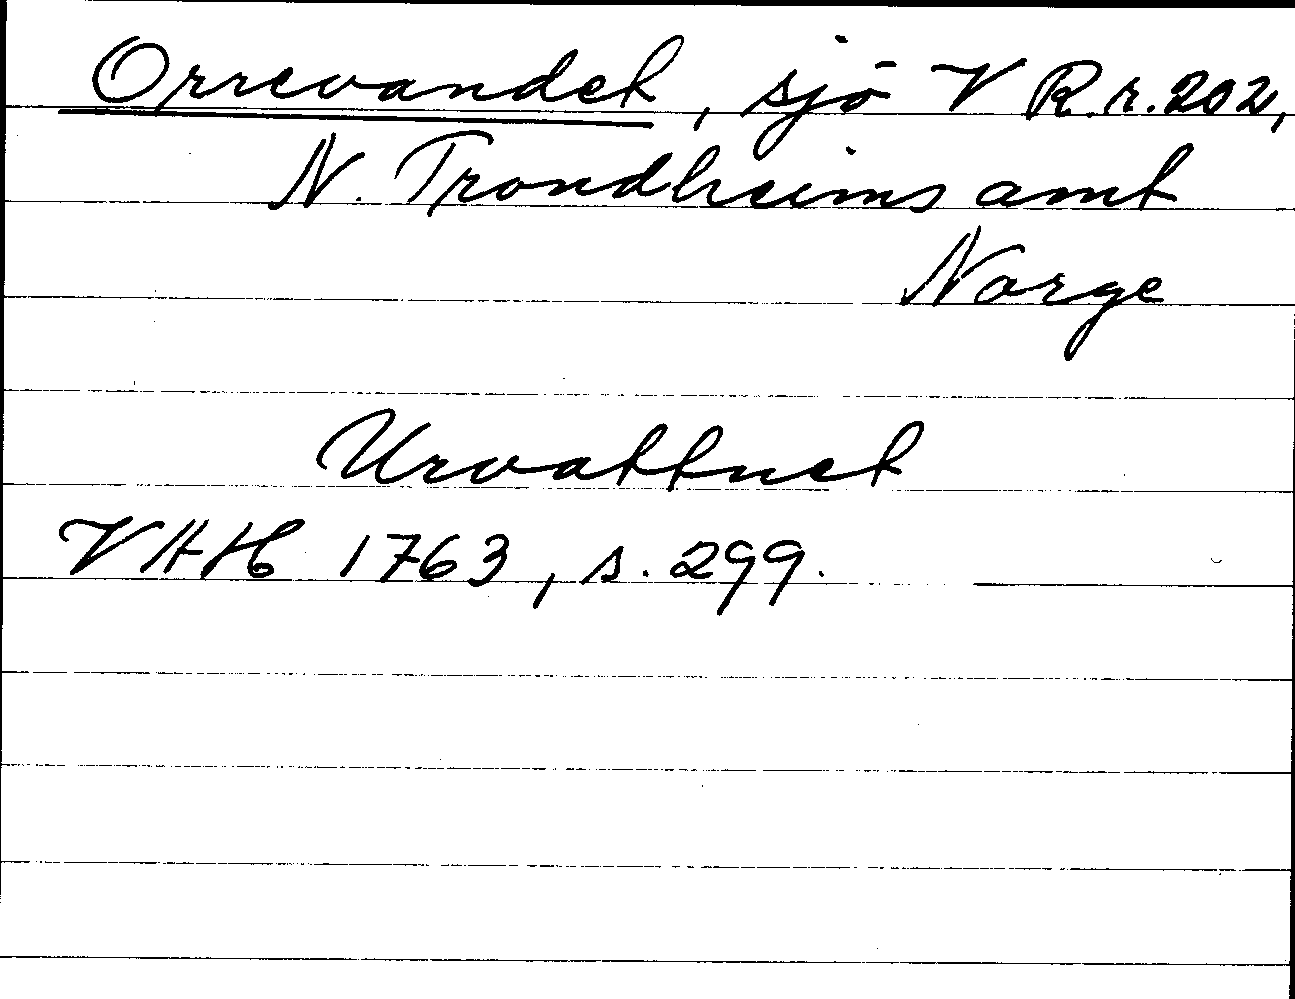 Orrevandet, sjö V R.r. 202,
N. Trondheims amt
Norge
Urvattnet
VHH 1763, s. 299.